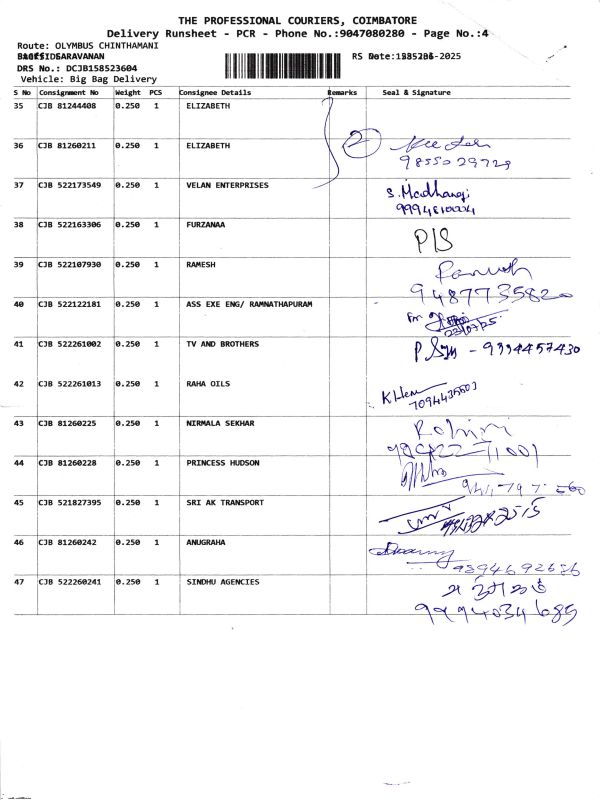 THE PROFESSIONAL COURIERS, COIMBATORE
Delivery Runsheet - PCR - Phone No.:9047080280 - Page No.:4
Route: OLYMBUS CHINTHAMANI
SARAVANAN RS No
DRS No.: DCJB158523604
Vehicle: Big Bag Delivery
S No Consignment No Weight PCS Consignee Details Remarks Seal & Signature
35 CJB 81244408 0.250 1 ELIZABETH
36 CJB 81260211 0.250 1 ELIZABETH 2
9855029729
37 CJB 522173549 0.250 1 VELAN ENTERPRISES S. Madhangi
38 CJB 522163306 0.250 1 FURZANAA P/S
39 CJB 522107930 0.250 1 RAMESH
9487735820
40 CJB 522122181 0.250 1 ASS EXE ENG/ RAMNATHAPURAM
41 CJB 522261002 0.250 1 TV AND BROTHERS - 9334457430
42 CJB 522261013 0.250 1 RAHA OILS
7094435503
43 CJB 81260225 0.250 1 NIRMALA SEKHAR Rohini
44 CJB 81260228 0.250 1 PRINCESS HUDSON
45 CJB 521827395 0.250 1 SRI AK TRANSPORT
46 CJB 81260242 0.250 1 ANUGRAHA
9394692686
47 CJB 522260241 0.250 1 SINDHU AGENCIES
9994034685